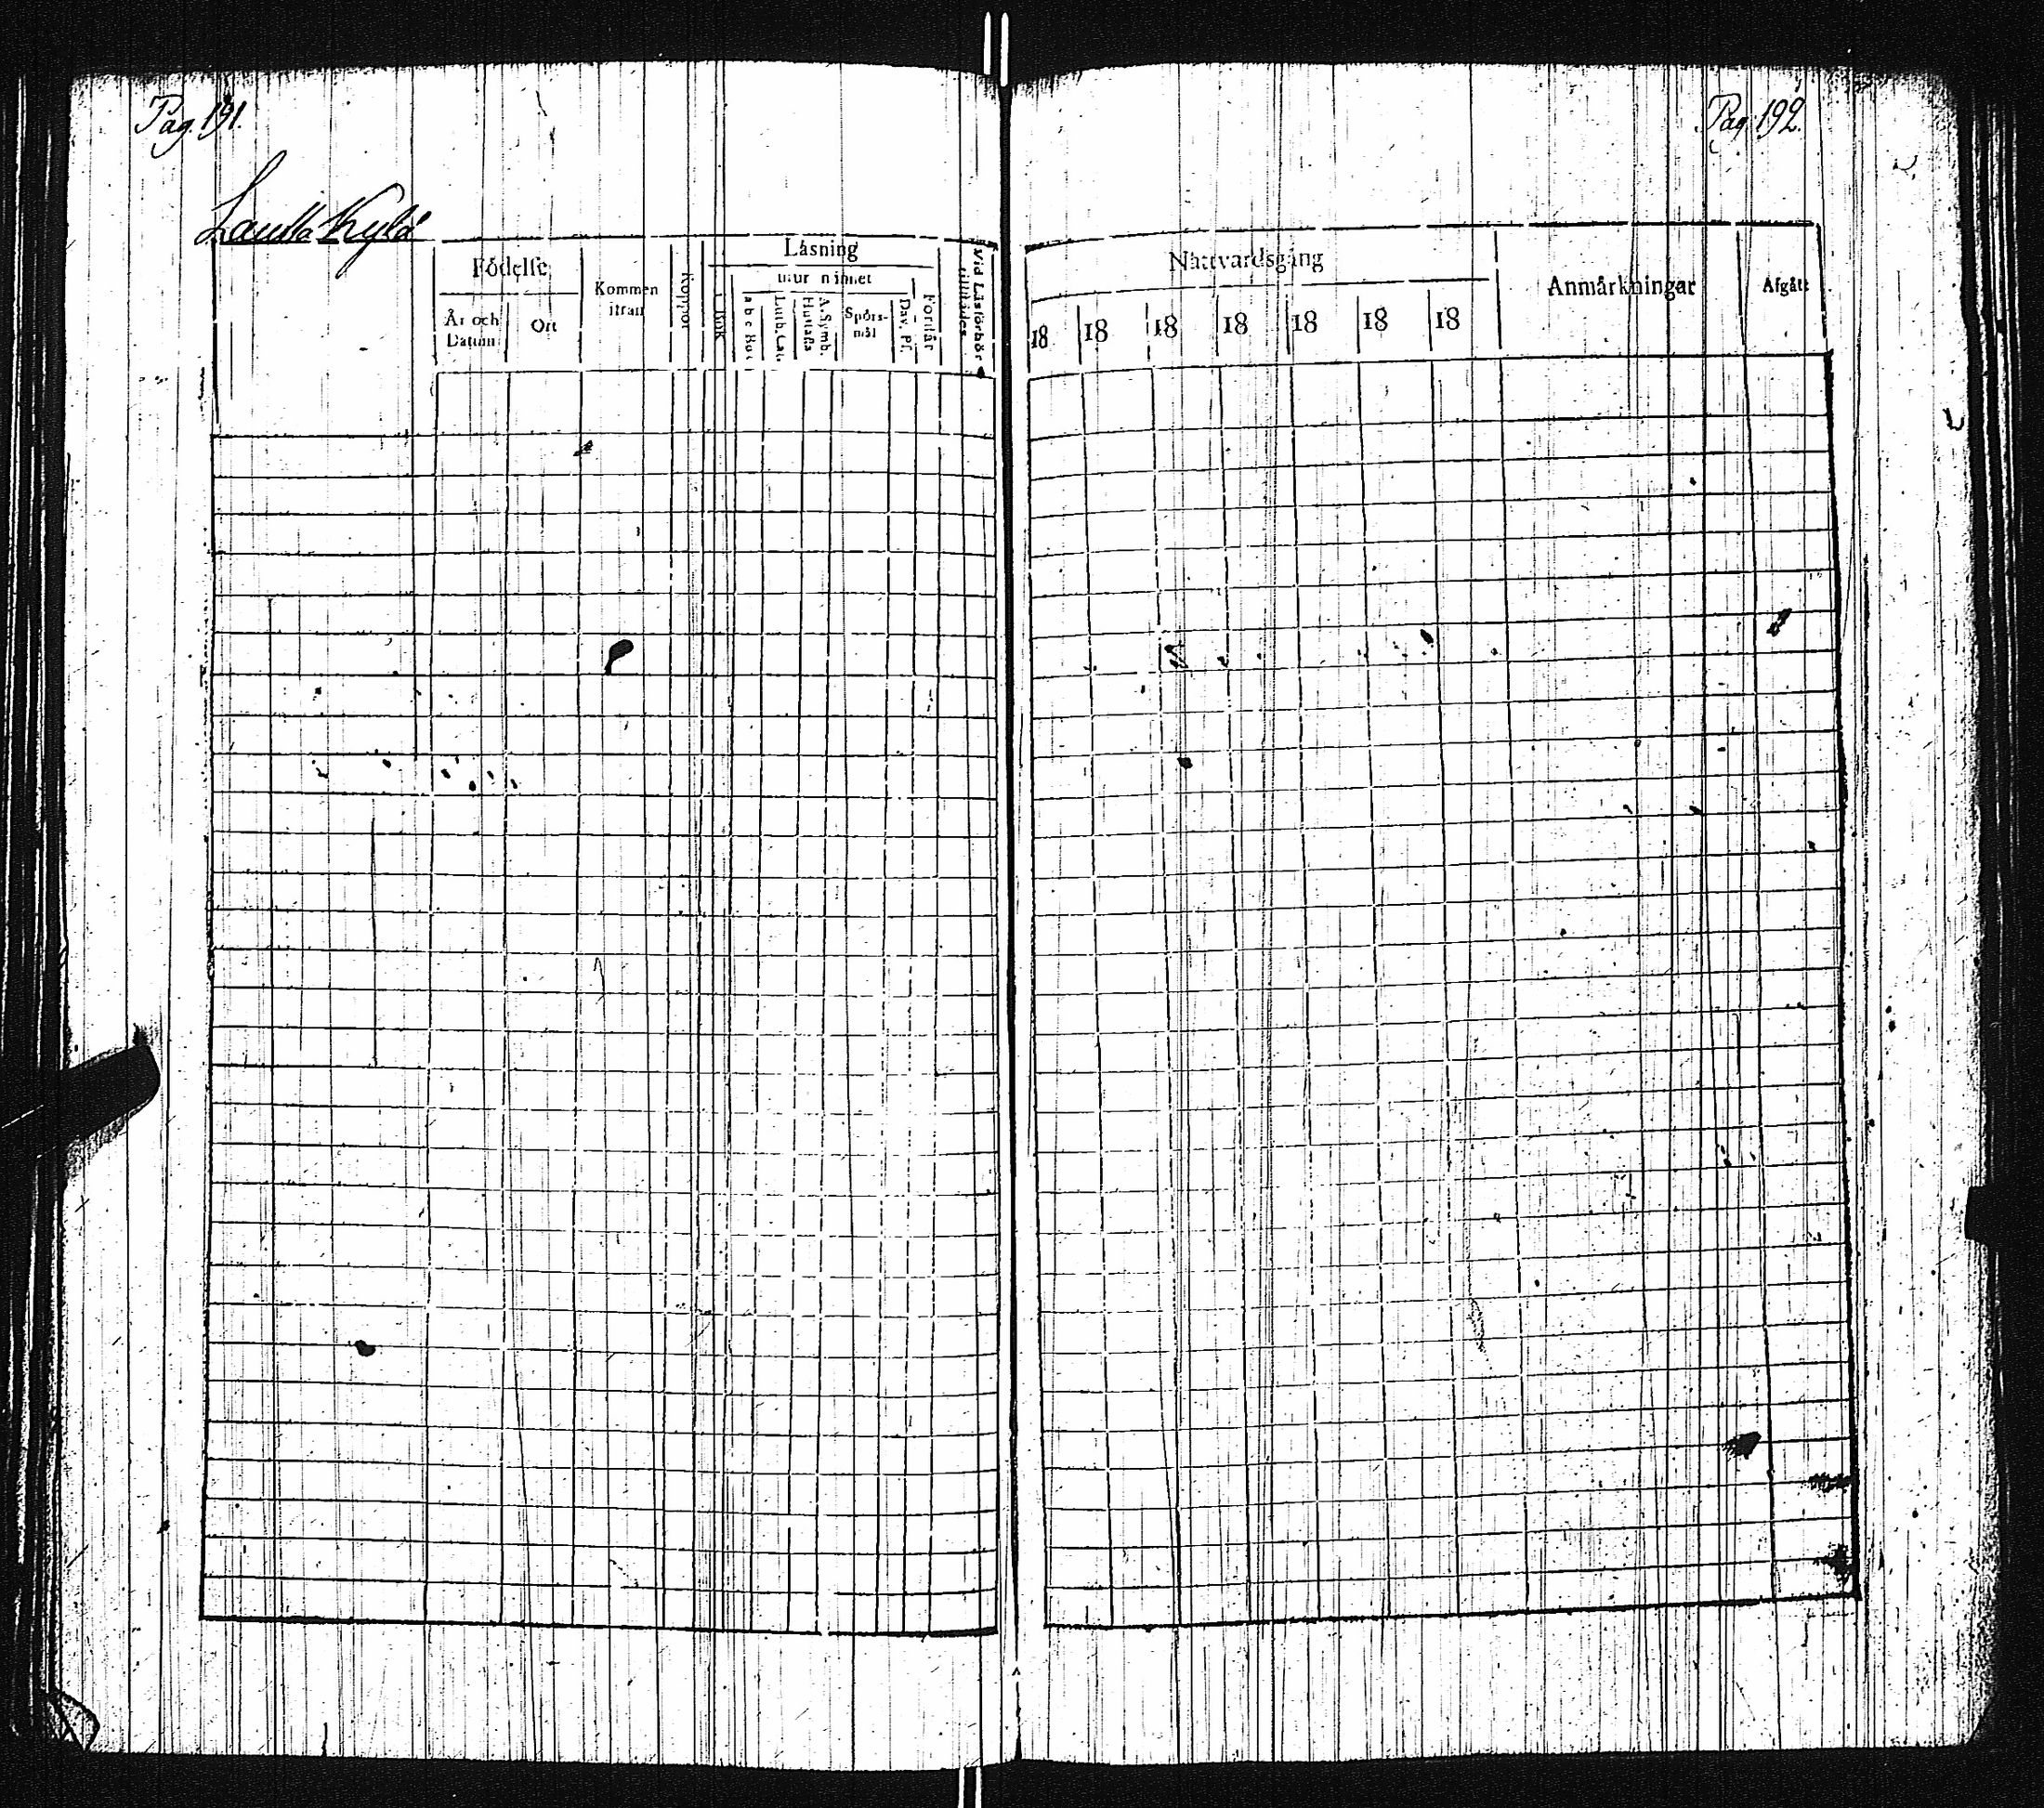 Pag. 191.
Lautta Kylä
Födelse
År och Datum
Ort
Kommen ifrån
Koppor
Läsning
utur minnet
i Bok
a b c Bok
Luth. Cat.
Hustafla
A. Symb.
Spörs-
mål
Dav. Ps.
Förstår
Vid Läsförhör
Pag 192.
Nattvardsgång
18 18 18 18 18 18 18
Anmärkningar
Afgått